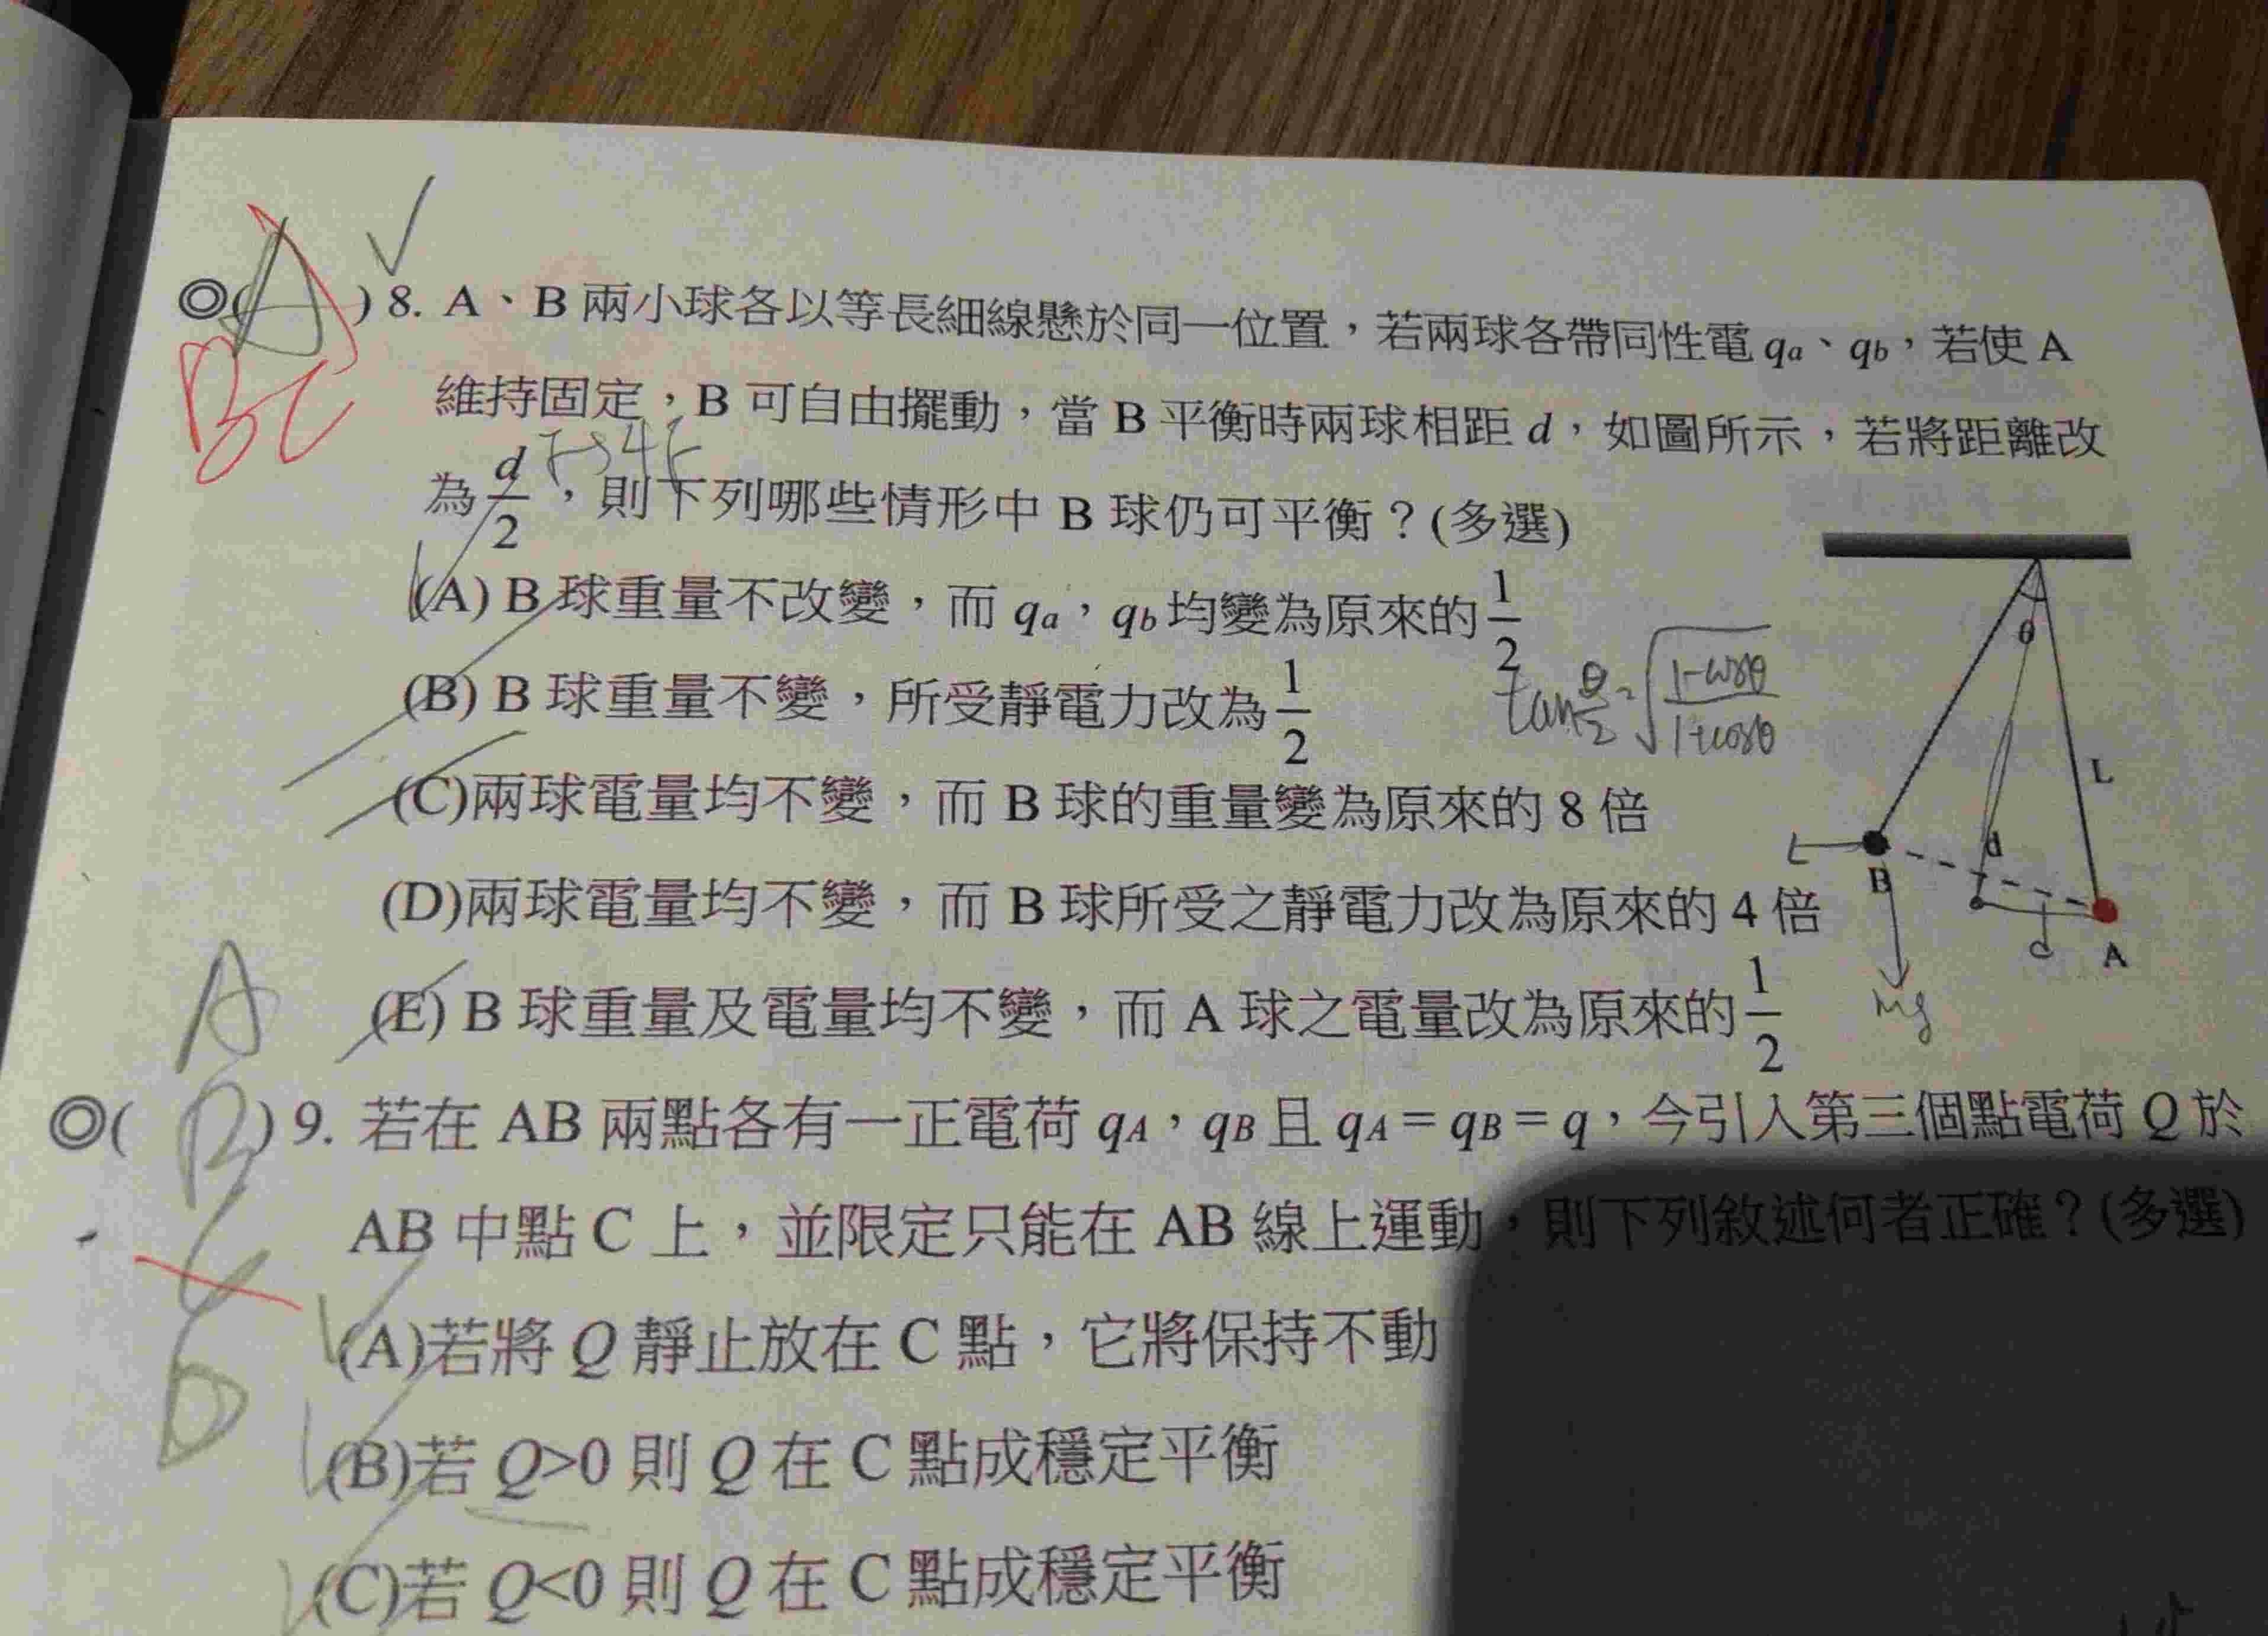 A
BC
◎( )8. A、B 兩小球各以等長細線懸於同一位置，若兩球各帶同性電 qa、qb，若使 A
維持固定，B 可自由擺動，當 B 平衡時兩球相距 d，如圖所示，若將距離改
F→4F
為 d/2，則下列哪些情形中 B 球仍可平衡？(多選)
(A) B 球重量不改變，而 qa，qb 均變為原來的 1/2
(B) B 球重量不變，所受靜電力改為 1/2
tan θ/2 = √(1-cosθ / 1+cosθ)
(C)兩球電量均不變，而 B 球的重量變為原來的 8 倍
(D)兩球電量均不變，而 B 球所受之靜電力改為原來的 4 倍
(E) B 球重量及電量均不變，而 A 球之電量改為原來的 1/2
θ
L
d
B
A
mg
A
B
C
D
◎( )9. 若在 AB 兩點各有一正電荷 qA，qB 且 qA = qB = q，今引入第三個點電荷 Q 於
AB 中點 C 上，並限定只能在 AB 線上運動，則下列敘述何者正確？(多選)
(A)若將 Q 靜止放在 C 點，它將保持不動
(B)若 Q>0 則 Q 在 C 點成穩定平衡
(C)若 Q<0 則 Q 在 C 點成穩定平衡